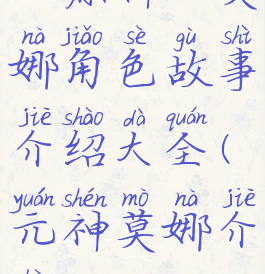 nà jiǎo sè gù shì
娜角色故事
jiè shào dà quán
介绍大全(
yuán shén mò nà jiè
元神莫娜介